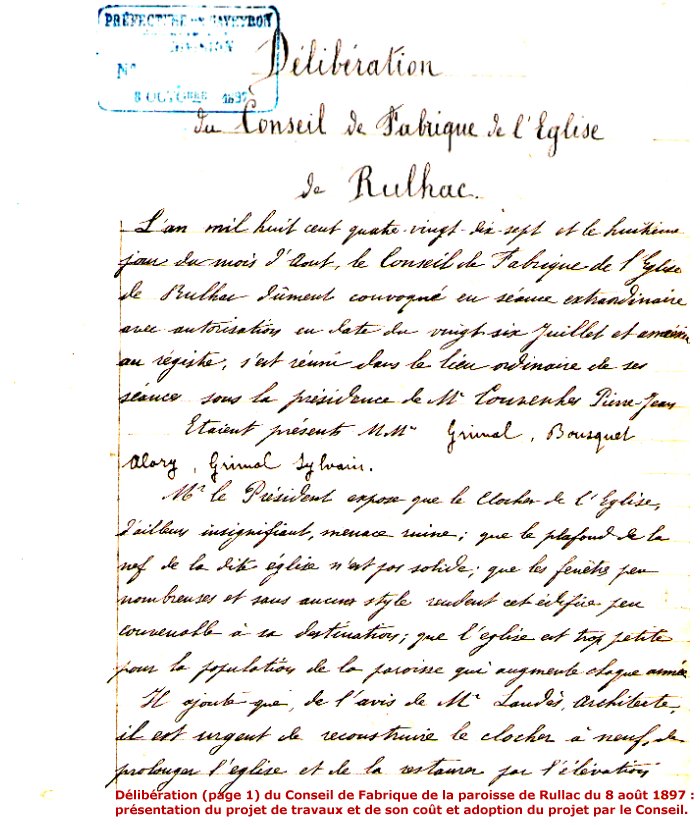 PRÉFECTURE DE L'AVEYRON
DIVISION
N°
8 OCTOBRE 1897
Délibération
du Conseil de Fabrique de l'Eglise
de Rulhac.
L'an mil huit cent quatre-vingt-dix-sept et le huitième
jour du mois d'Aout, le Conseil de Fabrique de l'Eglise
de Rulhac dûment convoqué en séance extraordinaire
avec autorisation en date du vingt-six Juillet et
au régistre, s'est réuni dans le lieu ordinaire de ses
séances sous la présidence de Mr Couvenhes Pierre-Jean
Etaient présents M.Mrs Grimal, Bousquet
Alary, Grimal Sylvain.
Mr le Président expose que le clocher de l'Eglise,
d'ailleurs insignifiant, menace ruine; que le plafond de la
nef de la dite église n'est pas solide; que les fenêtres peu
nombreuses et sans aucun style rendent cet édifice peu
convenable à sa destination; que l'eglise est trop petite
pour la population de la paroisse qui augmente chaque année
Il ajoute que, de l'avis de Mr Laudès, Architecte,
il est urgent de reconstruire le clocher à neuf, de
prolonger l'eglise et de la restaurer par l'élévation
Délibération (page 1) du Conseil de Fabrique de la paroisse de Rullac du 8 août 1897 :
présentation du projet de travaux et de son coût et adoption du projet par le Conseil.